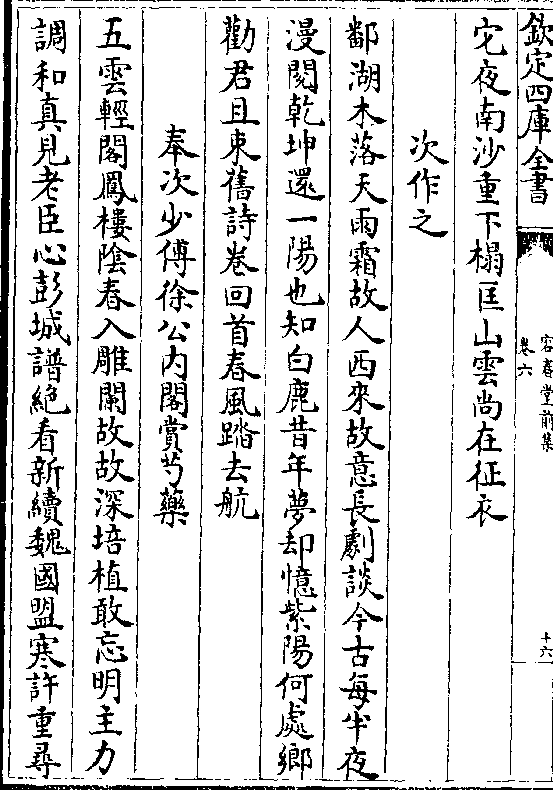 欽定四庫全書
容春堂前集
卷六
十六
它夜南沙重下榻匡山雲尚在征衣
次作之
鄱湖木落天雨霜故人西來故意長劇談今古每半夜
漫閱乾坤還一陽也知白鹿昔年夢却憶紫陽何處鄉
勸君且束舊詩卷回首春風踏去航
奉次少傅徐公内閣賞芍藥
五雲輕閣鳳樓陰春入雕闌故故深培植敢忘明主力
調和真見老臣心彭城譜絶看新續魏國盟寒許重尋